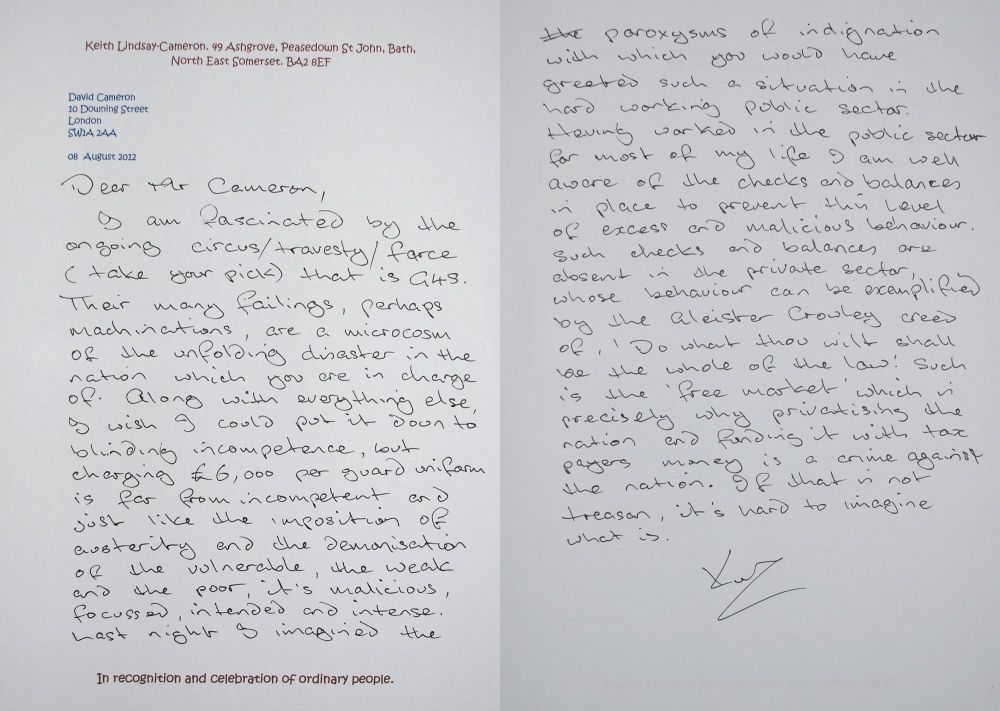 Keith Lindsay-Cameron. 49 Ashgrove, Peasedown St John, Bath,
North East Somerset. BA2 8EF
David Cameron
10 Downing Street
London
SW1A 2AA
08 August 2012
Dear Mr Cameron,
I am fascinated by the
ongoing circus/travesty/farce
(take your pick) that is G4S.
Their many failings, perhaps
machinations, are a microcosm
of the unfolding disaster in the
nation which you are in charge
of. Along with everything else,
I wish I could put it down to
blinding incompetence, but
charging £6,000 per guard uniform
is far from incompetent and
just like the imposition of
austerity and the demonisation
of the vulnerable, the weak
and the poor, it's malicious,
focussed, intended and intense.
Last night I imagined the
In recognition and celebration of ordinary people.
the paroxysms of indignation
with which you would have
greeted such a situation in the
hard working public sector.
Having worked in the public sector
for most of my life I am well
aware of the checks and balances
in place to prevent this level
of excess and malicious behaviour.
Such checks and balances are
absent in the private sector,
whose behaviour can be exemplified
by the Aleister Crowley creed
of, 'Do what thou wilt shall
be the whole of the law.' Such
is the 'free market' which is
precisely why privatising the
nation and funding it with tax
payers money is a crime against
the nation. If that is not
treason, it's hard to imagine
what is.